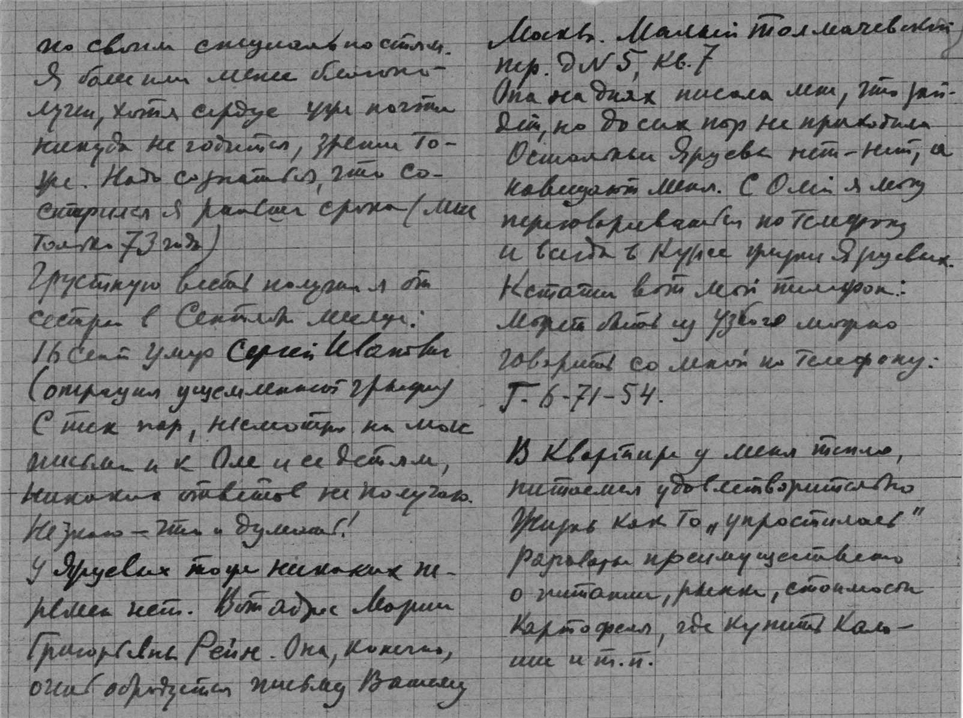 по своим специальностям.
Я более или менее благопо-
лучен, хотя сердце уже почти
никуда не годится, зрение то-
же. Надо сознаться, что со-
старился я раньше срока (мне
только 73 года)
Грустную весть получил я от
сестры в Сентябре месяце:
16 сент умер Сергей Иванович
(операция ущемленной грыжи)
С тех пор, несмотря на мои
письма и к Оле и ее детям,
никаких ответов не получаю.
Не знаю – что и думать!
У Яруевых тоже никаких пе-
ремен нет. Вот адрес Марии
Григорьевны Рейн. Она, конечно,
очень обрадуется письму Вашему
Москва. Малый Толмачевский
пер. д N 5, кв. 7
Она на днях писала мне, что зай-
дет, но до сих пор не приходила
Остальные Яруевы нет-нет, а
навещают меня. С Олей я могу
переговариваться по телефону
и всегда в курсе жизни Яруевых.
Кстати вот мой телефон:
Может быть из Узкого можно
говорить со мной по телефону:
Г-6-71-54.
В квартире у меня тепло,
питаемся удовлетворительно
Жизнь как то „упростилась"
Разговоры преимущественно
о питании, рынке, стоимости
картофеля, где купить кало-
ши и т.п.